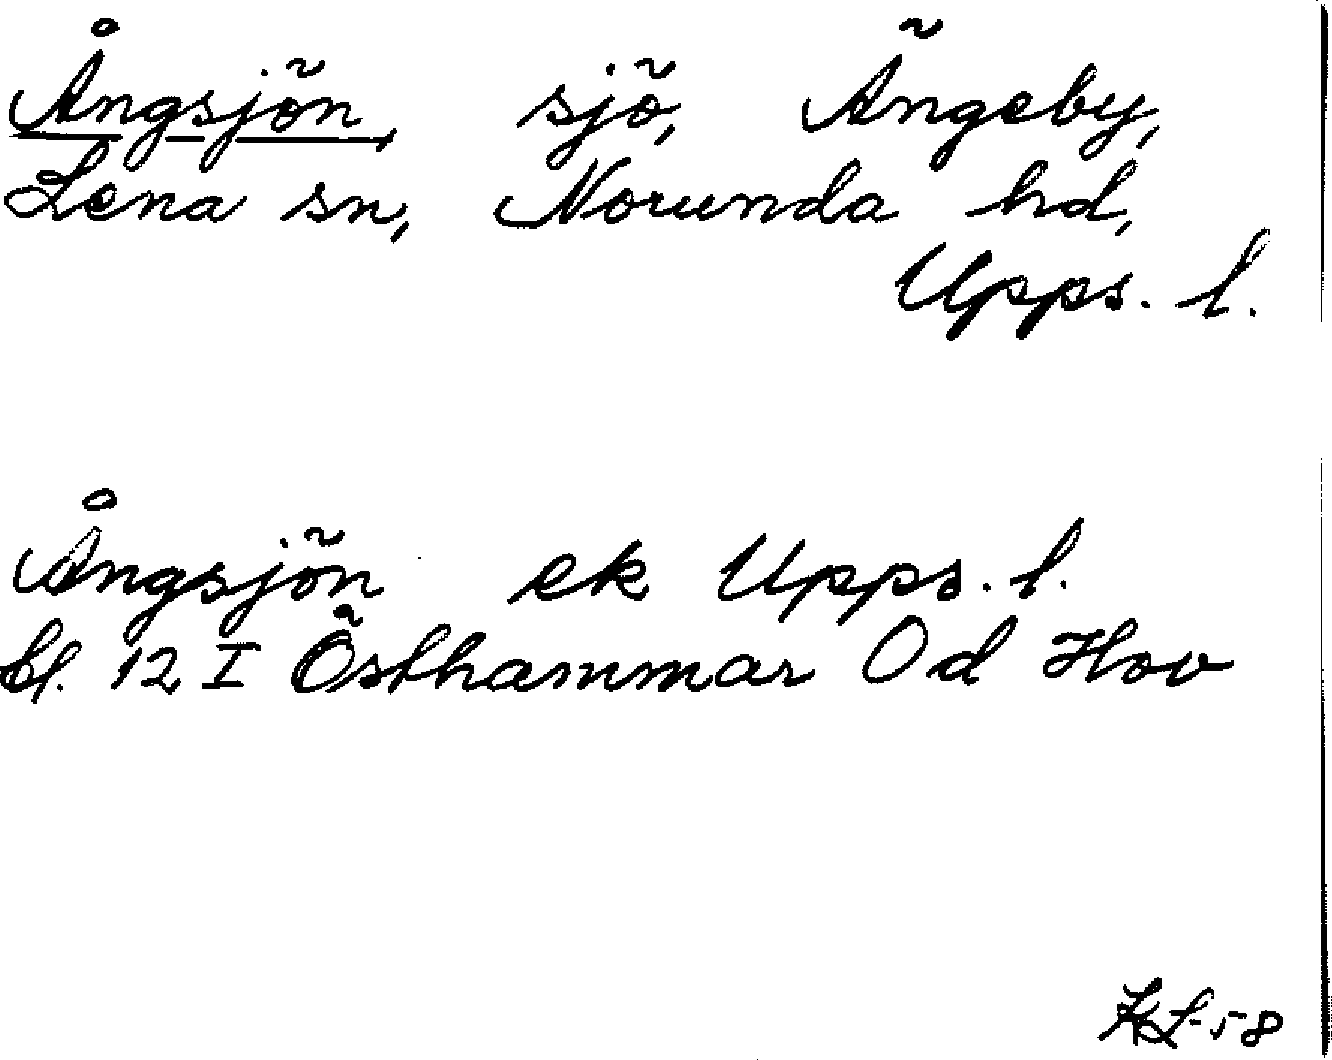 Ångsjön, sjö, Ängeby,
Lena sn, Norunda hd,
Upps. l.
Ångsjön ek Upps. l.
bl. 12 I Östhammar Od Hov
-58